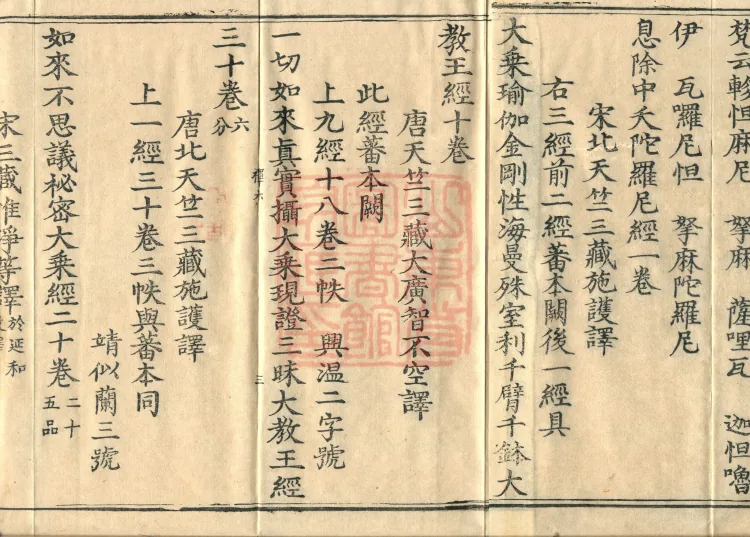 梵云軫怛麻尼　拏麻　薩哩瓦　迦怛嚕
伊　瓦囉尼怛　拏麻陀羅尼
息除中夭陀羅尼經一卷
宋北天竺三藏施護譯
右三經前二經蕃本闕後一經具
大乘瑜伽金剛性海曼殊室利千臂千鉢大
教王經十卷
唐天竺三藏大廣智不空譯
此經蕃本闕
上九經十八卷二帙　興温二字號
一切如來眞實攝大乘現證三昧大教王經
三
三十卷六分
唐北天竺三藏施護譯
上一經三十卷三帙與蕃本同
靖似蘭三號
如來不思議祕密大乘經二十卷二十五品
宋三藏惟淨等譯於延和